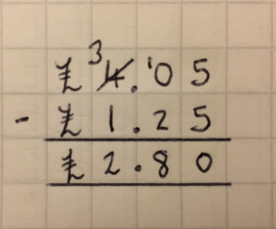 £ ³4.¹05
- £ 1.25
£ 2.80